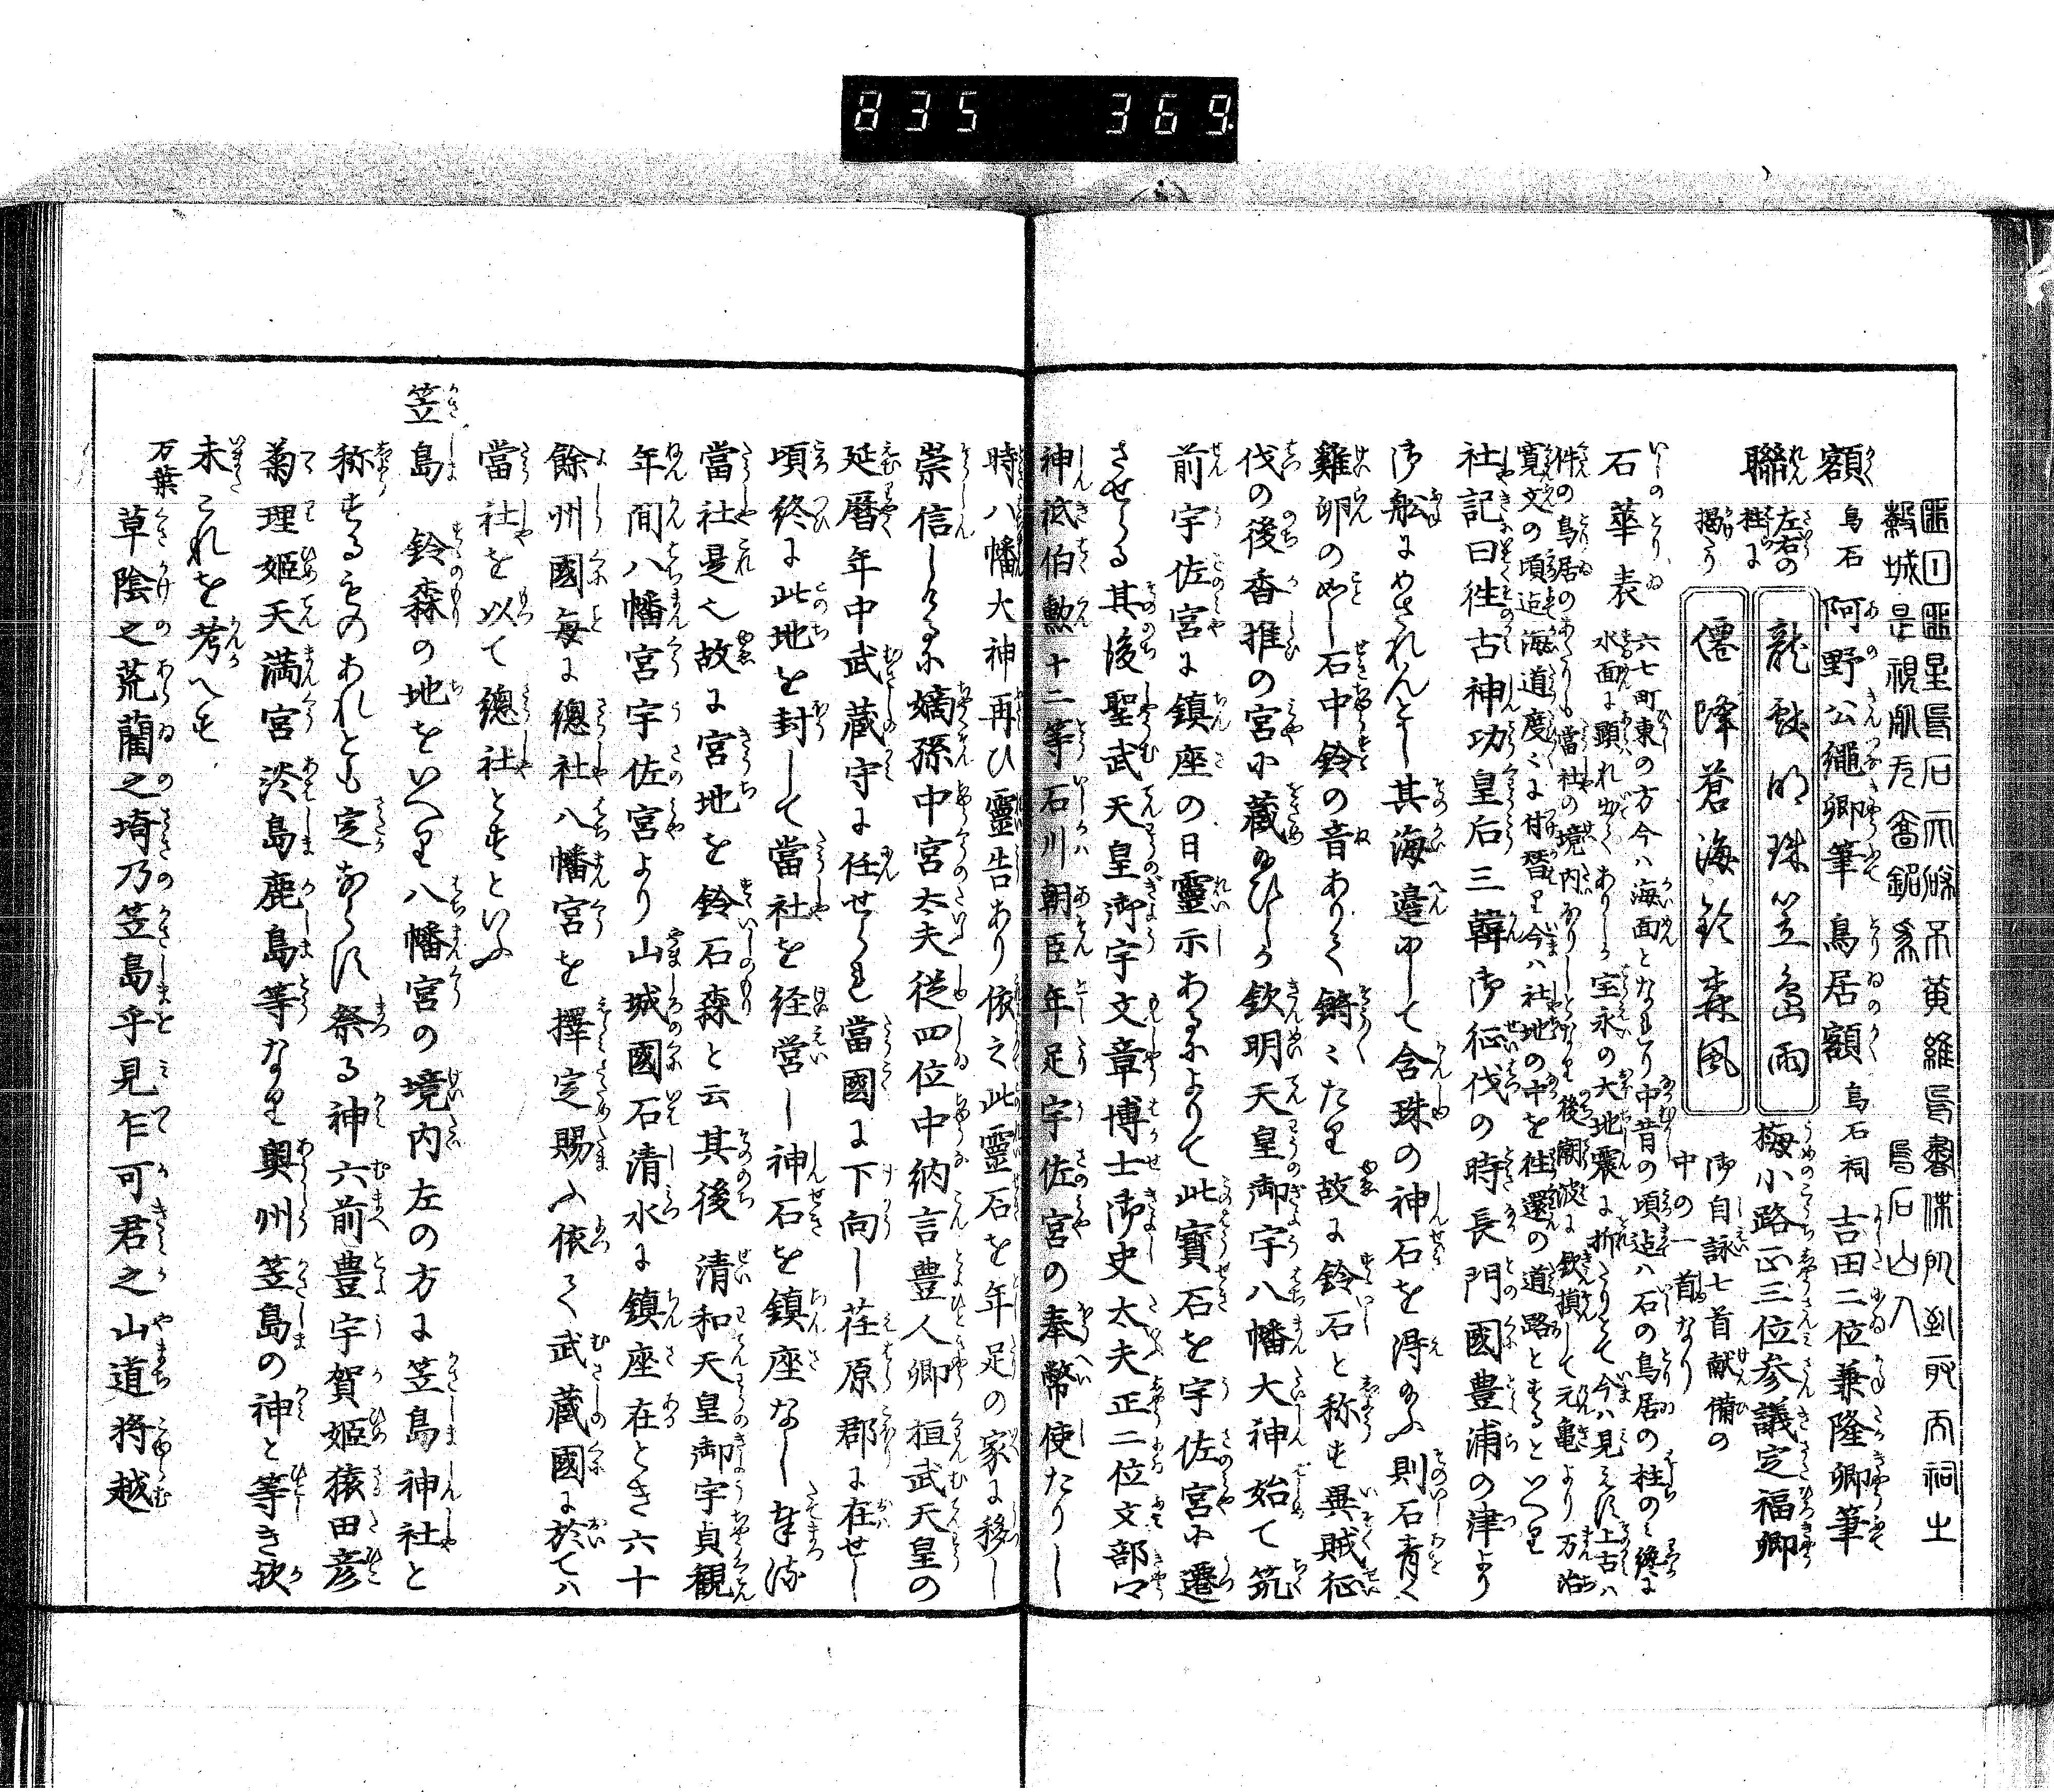 835 369
穀城是視
烏石山人
額 烏石 阿野公縄卿筆 鳥居額 烏石祠 吉田二位兼隆卿筆
聯 左右の柱に掲くる
龍蛟明珠笠島雨
僊降蒼海鈴森風
梅小路正三位参議定福卿
御自詠七首献備の
中の一首なり
石華表 六七町東の方今ハ海面となれり中昔の頃迄ハ石の鳥居の柱のミ纔に
水面に顕れ出てありしか宝永の大地震に折たりとて今ハ見えす上古ハ
件の鳥居のあたりも當社の境内なりしとなり後潮波に欽損して元亀より万治
寛文の頃迄海道度〻に付替り今ハ社地の中を往還の道路とすると いへり
社記曰往古神功皇后三韓御征伐の時長門國豊浦の津より
御舩にめされんとし其海邉にして含珠の神石を得給ふ則石青く
雞卵の如し石中鈴の音ありて鏘〻たり故に鈴石と称す異賊征
伐の後香椎の宮に蔵給ひしか欽明天皇御宇八幡大神始て筑
前宇佐宮に鎮座の日靈示あるによりて此寳石を宇佐宮に遷
させらる其後聖武天皇御宇文章博士御史大夫正二位文部〻
神祇伯勲十二等石川朝臣年足宇佐宮の奉幣使たりし
時八幡大神再ひ靈告あり依之此靈石を年足の家に移し
崇信しけるに嫡孫中宮太夫従四位中納言豊人卿桓武天皇の
延暦年中武蔵守に任せられ當國に下向し荏原郡に在せし
頃終に此地を封して當社を経営し神石を鎮座なし奉る
當社是也故に宮地を鈴石森と云其後清和天皇御宇貞観
年間八幡宮宇佐宮より山城國石清水に鎮座在とき六十
餘州國毎に總社八幡宮を擇定賜ふ依て武蔵國に於てハ
當社を以て總社とすといふ
笠島 鈴森の地をいへり八幡宮の境内左の方に笠島神社と
称するものあれとも定ならす祭る神六前豊宇賀姫猿田彦
菊理姫天満宮淡島鹿島等なり奥州笠島の神と等き歟
未これを考へす
万葉 草陰之荒藺之埼乃笠島乎見乍可君之山道将越